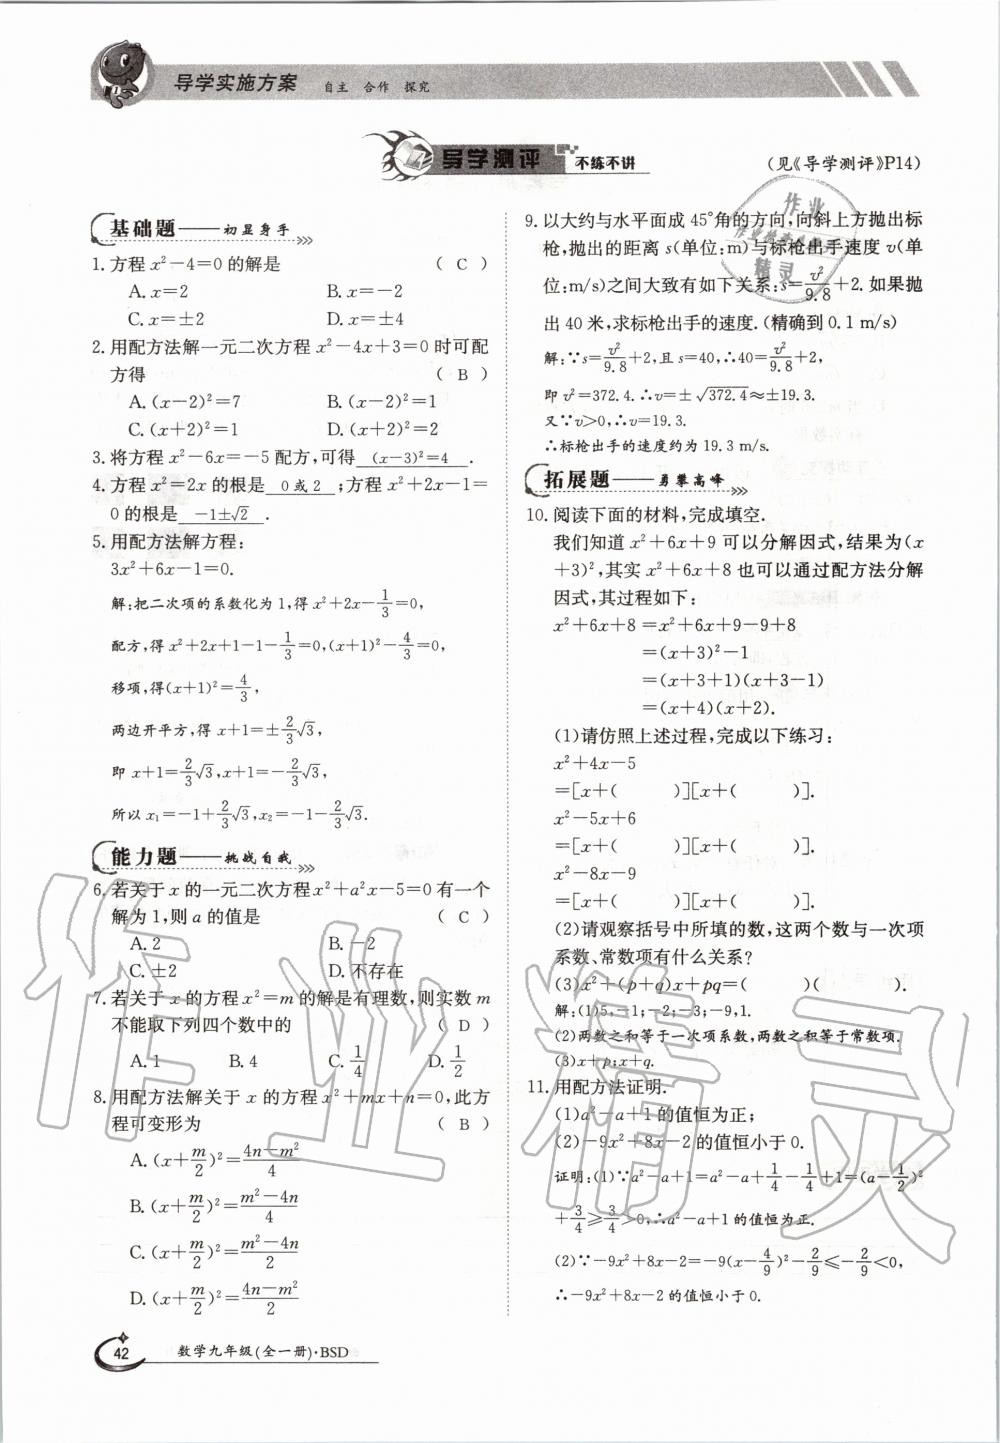 导学实施方案 自主 合作 探究
导学测评 不练不讲
(见《导学测评》P14)
基础题——初显身手
1. 方程 x²-4=0 的解是 ( C )
A. x=2 B. x=-2
C. x=±2 D. x=±4
2. 用配方法解一元二次方程 x²-4x+3=0 时可配
方得 ( B )
A. (x-2)²=7 B. (x-2)²=1
C. (x+2)²=1 D. (x+2)²=2
3. 将方程 x²-6x=-5 配方,可得 (x-3)²=4 .
4. 方程 x²=2x 的根是 0 或 2 ;方程 x²+2x-1=
0 的根是 -1±√2 .
5. 用配方法解方程:
3x²+6x-1=0.
解:把二次项的系数化为 1,得 x²+2x-1/3=0,
配方,得 x²+2x+1-1-1/3=0,(x+1)²-4/3=0,
移项,得(x+1)²=4/3,
两边开平方,得 x+1=±2/3√3,
即 x+1=2/3√3,x+1=-2/3√3,
所以 x₁=-1+2/3√3,x₂=-1-2/3√3.
能力题——挑战自我
6. 若关于 x 的一元二次方程 x²+a²x-5=0 有一个
解为 1,则 a 的值是 ( C )
A. 2 B. -2
C. ±2 D. 不存在
7. 若关于 x 的方程 x²=m 的解是有理数,则实数 m
不能取下列四个数中的 ( D )
A. 1 B. 4 C. 1/4 D. 1/2
8. 用配方法解关于 x 的方程 x²+mx+n=0,此方
程可变形为 ( B )
A. (x+m/2)²=(4n-m²)/4
B. (x+m/2)²=(m²-4n)/4
C. (x+m/2)²=(m²-4n)/2
D. (x+m/2)²=(4n-m²)/2
9. 以大约与水平面成 45°角的方向,向斜上方抛出标
枪,抛出的距离 s(单位:m)与标枪出手速度 v(单
位:m/s)之间大致有如下关系:s=v²/9.8+2. 如果抛
出 40 米,求标枪出手的速度.(精确到 0.1 m/s)
解:∵s=v²/9.8+2,且 s=40,∴40=v²/9.8+2,
即 v²=372.4.∴v=±√372.4≈±19.3.
又∵v>0,∴v=19.3.
∴标枪出手的速度约为 19.3 m/s.
拓展题——勇攀高峰
10. 阅读下面的材料,完成填空.
我们知道 x²+6x+9 可以分解因式,结果为(x
+3)²,其实 x²+6x+8 也可以通过配方法分解
因式,其过程如下:
x²+6x+8=x²+6x+9-9+8
=(x+3)²-1
=(x+3+1)(x+3-1)
=(x+4)(x+2).
(1)请仿照上述过程,完成以下练习:
x²+4x-5
=[x+( )][x+( )].
x²-5x+6
=[x+( )][x+( )].
x²-8x-9
=[x+( )][x+( )].
(2)请观察括号中所填的数,这两个数与一次项
系数、常数项有什么关系?
(3)x²+(p+q)x+pq=( )( ).
解:(1)5,-1;-2;-3;-9,1.
(2)两数之和等于一次项系数,两数之积等于常数项.
(3)x+p;x+q.
11. 用配方法证明.
(1)a²-a+1 的值恒为正;
(2)-9x²+8x-2 的值恒小于 0.
证明:(1)∵a²-a+1=a²-a+1/4-1/4+1=(a-1/2)²
+3/4≥3/4>0,∴a²-a+1 的值恒为正.
(2)∵-9x²+8x-2=-9(x-4/9)²-2/9≤-2/9<0,
∴-9x²+8x-2 的值恒小于 0.
42 数学九年级(全一册)·BSD
作业
精灵
作业精灵